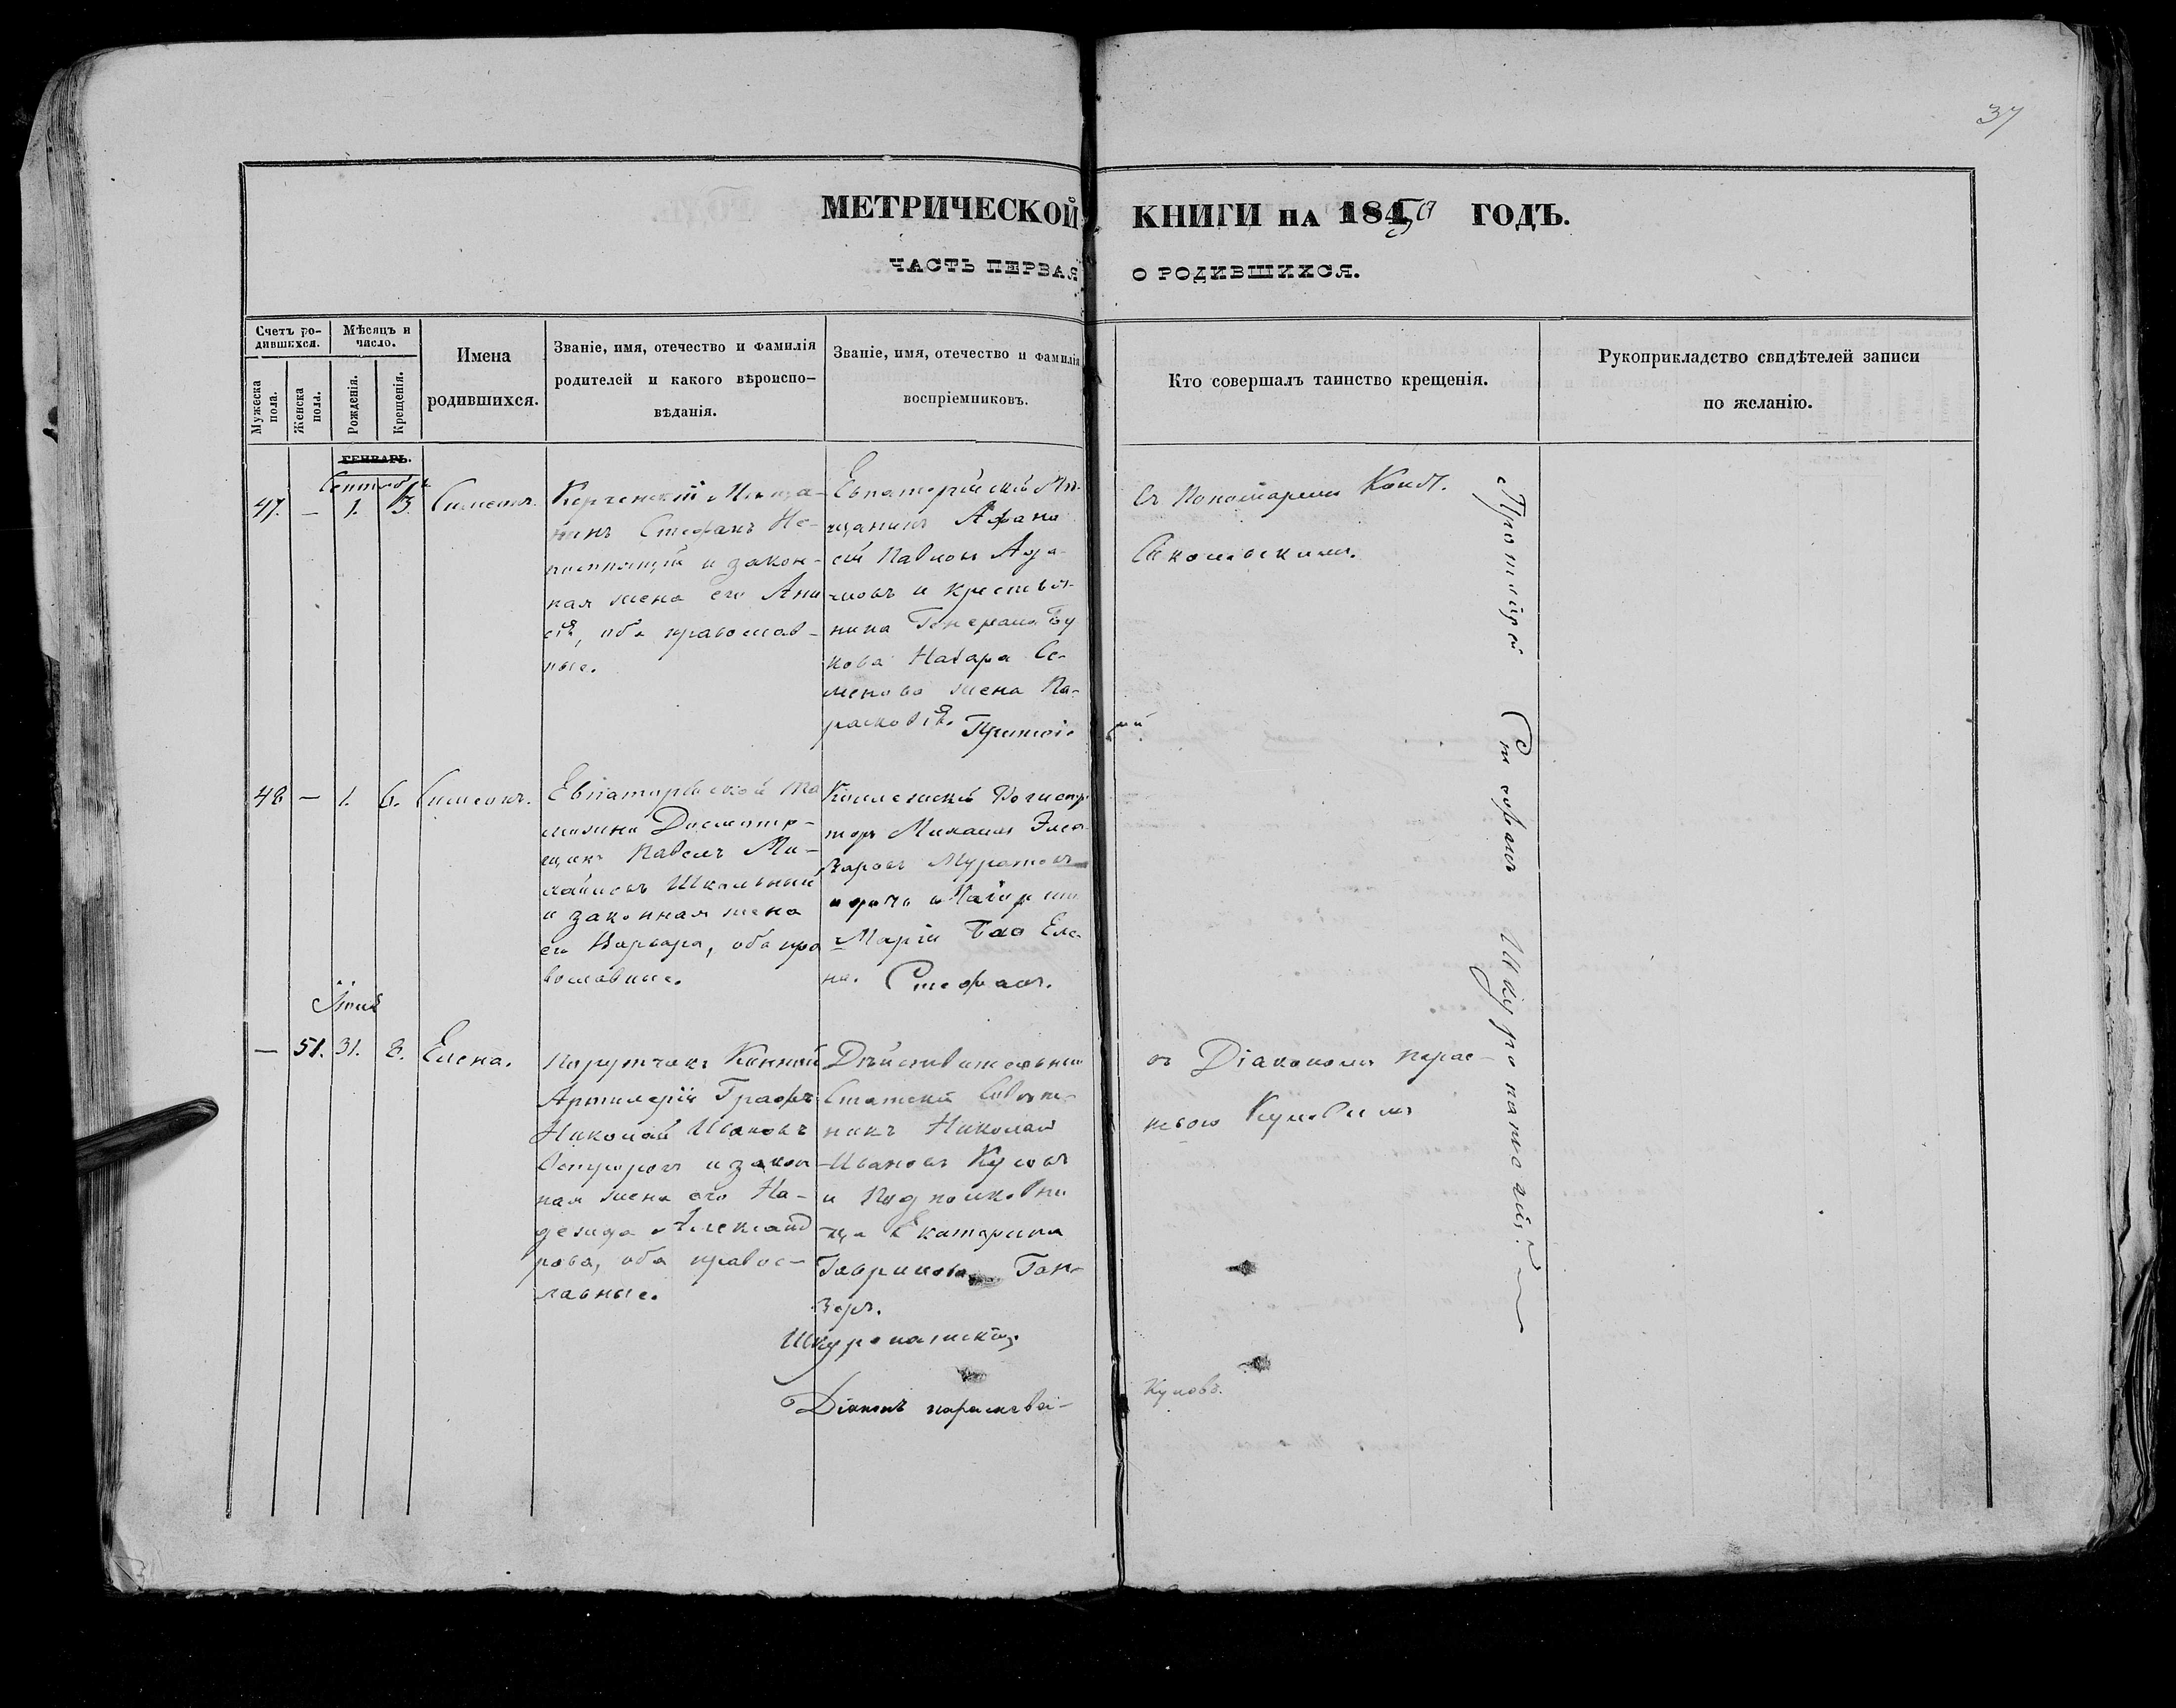 37
МЕТРИЧЕСКОЙ КНИГИ НА 1850 ГОДЪ.
ЧАСТЬ ПЕРВАЯ О РОДИВШИХСЯ.
Счетъ ро-
дившихся.
Мужеска
пола.
Женска
пола.
Мѣсяцъ и
число.
Рожденія.
Крещенія.
Имена
родившихся.
Званіе, имя, отечество и фамилія
родителей и какого вѣроиспо-
вѣданія.
Званіе, имя, отечество и фамилія
воспріемниковъ.
Кто совершалъ таинство крещенія.
Рукоприкладство свидѣтелей записи
по желанію.
ГЕНВАРЬ.
47. — 1. 3. Симеонъ.
Керченскій Мѣща-
нинъ Стефанъ Не-
и закон-
ная жена его Ани
сія, оба православ-
ные.
Евпаторійскій Мѣ-
щанинъ Афана
сій Павловъ
и крестьян-
нина Генерала
Назара Се-
менова жена Па-
расковія.
Протоіе рей
Съ Пономаремъ Конст.
Сикольскимъ.
48 — 1. 6. Симеонъ.
Евпаторійской Та
можни Досмотр-
щикъ Павелъ Ми-
хайловъ Школьный
и законная жена
его Варвара, оба пра
вославные.
Коллежскій Регистра
торъ Михаилъ
Муратовъ
и дочь
Марія Елена.
Стефанъ.
— 51. 31. 8. Елена.
Порутчикъ Конной
Артилеріи Графъ
Николай Ивановъ
и закон
ная жена его На-
дежда Александ
рова, оба правос-
лавные.
Дѣйствительный
Статскій Совѣт-
никъ Николай
Ивановъ Кусовъ
и Подполковни
ца Екатерина
Гаврилова Ган-
зеръ.
Шкуропатскій.
Діаконъ
Куновъ.
съ Діакономъ
Протоіерей Стефанъ Шкуропатскій.